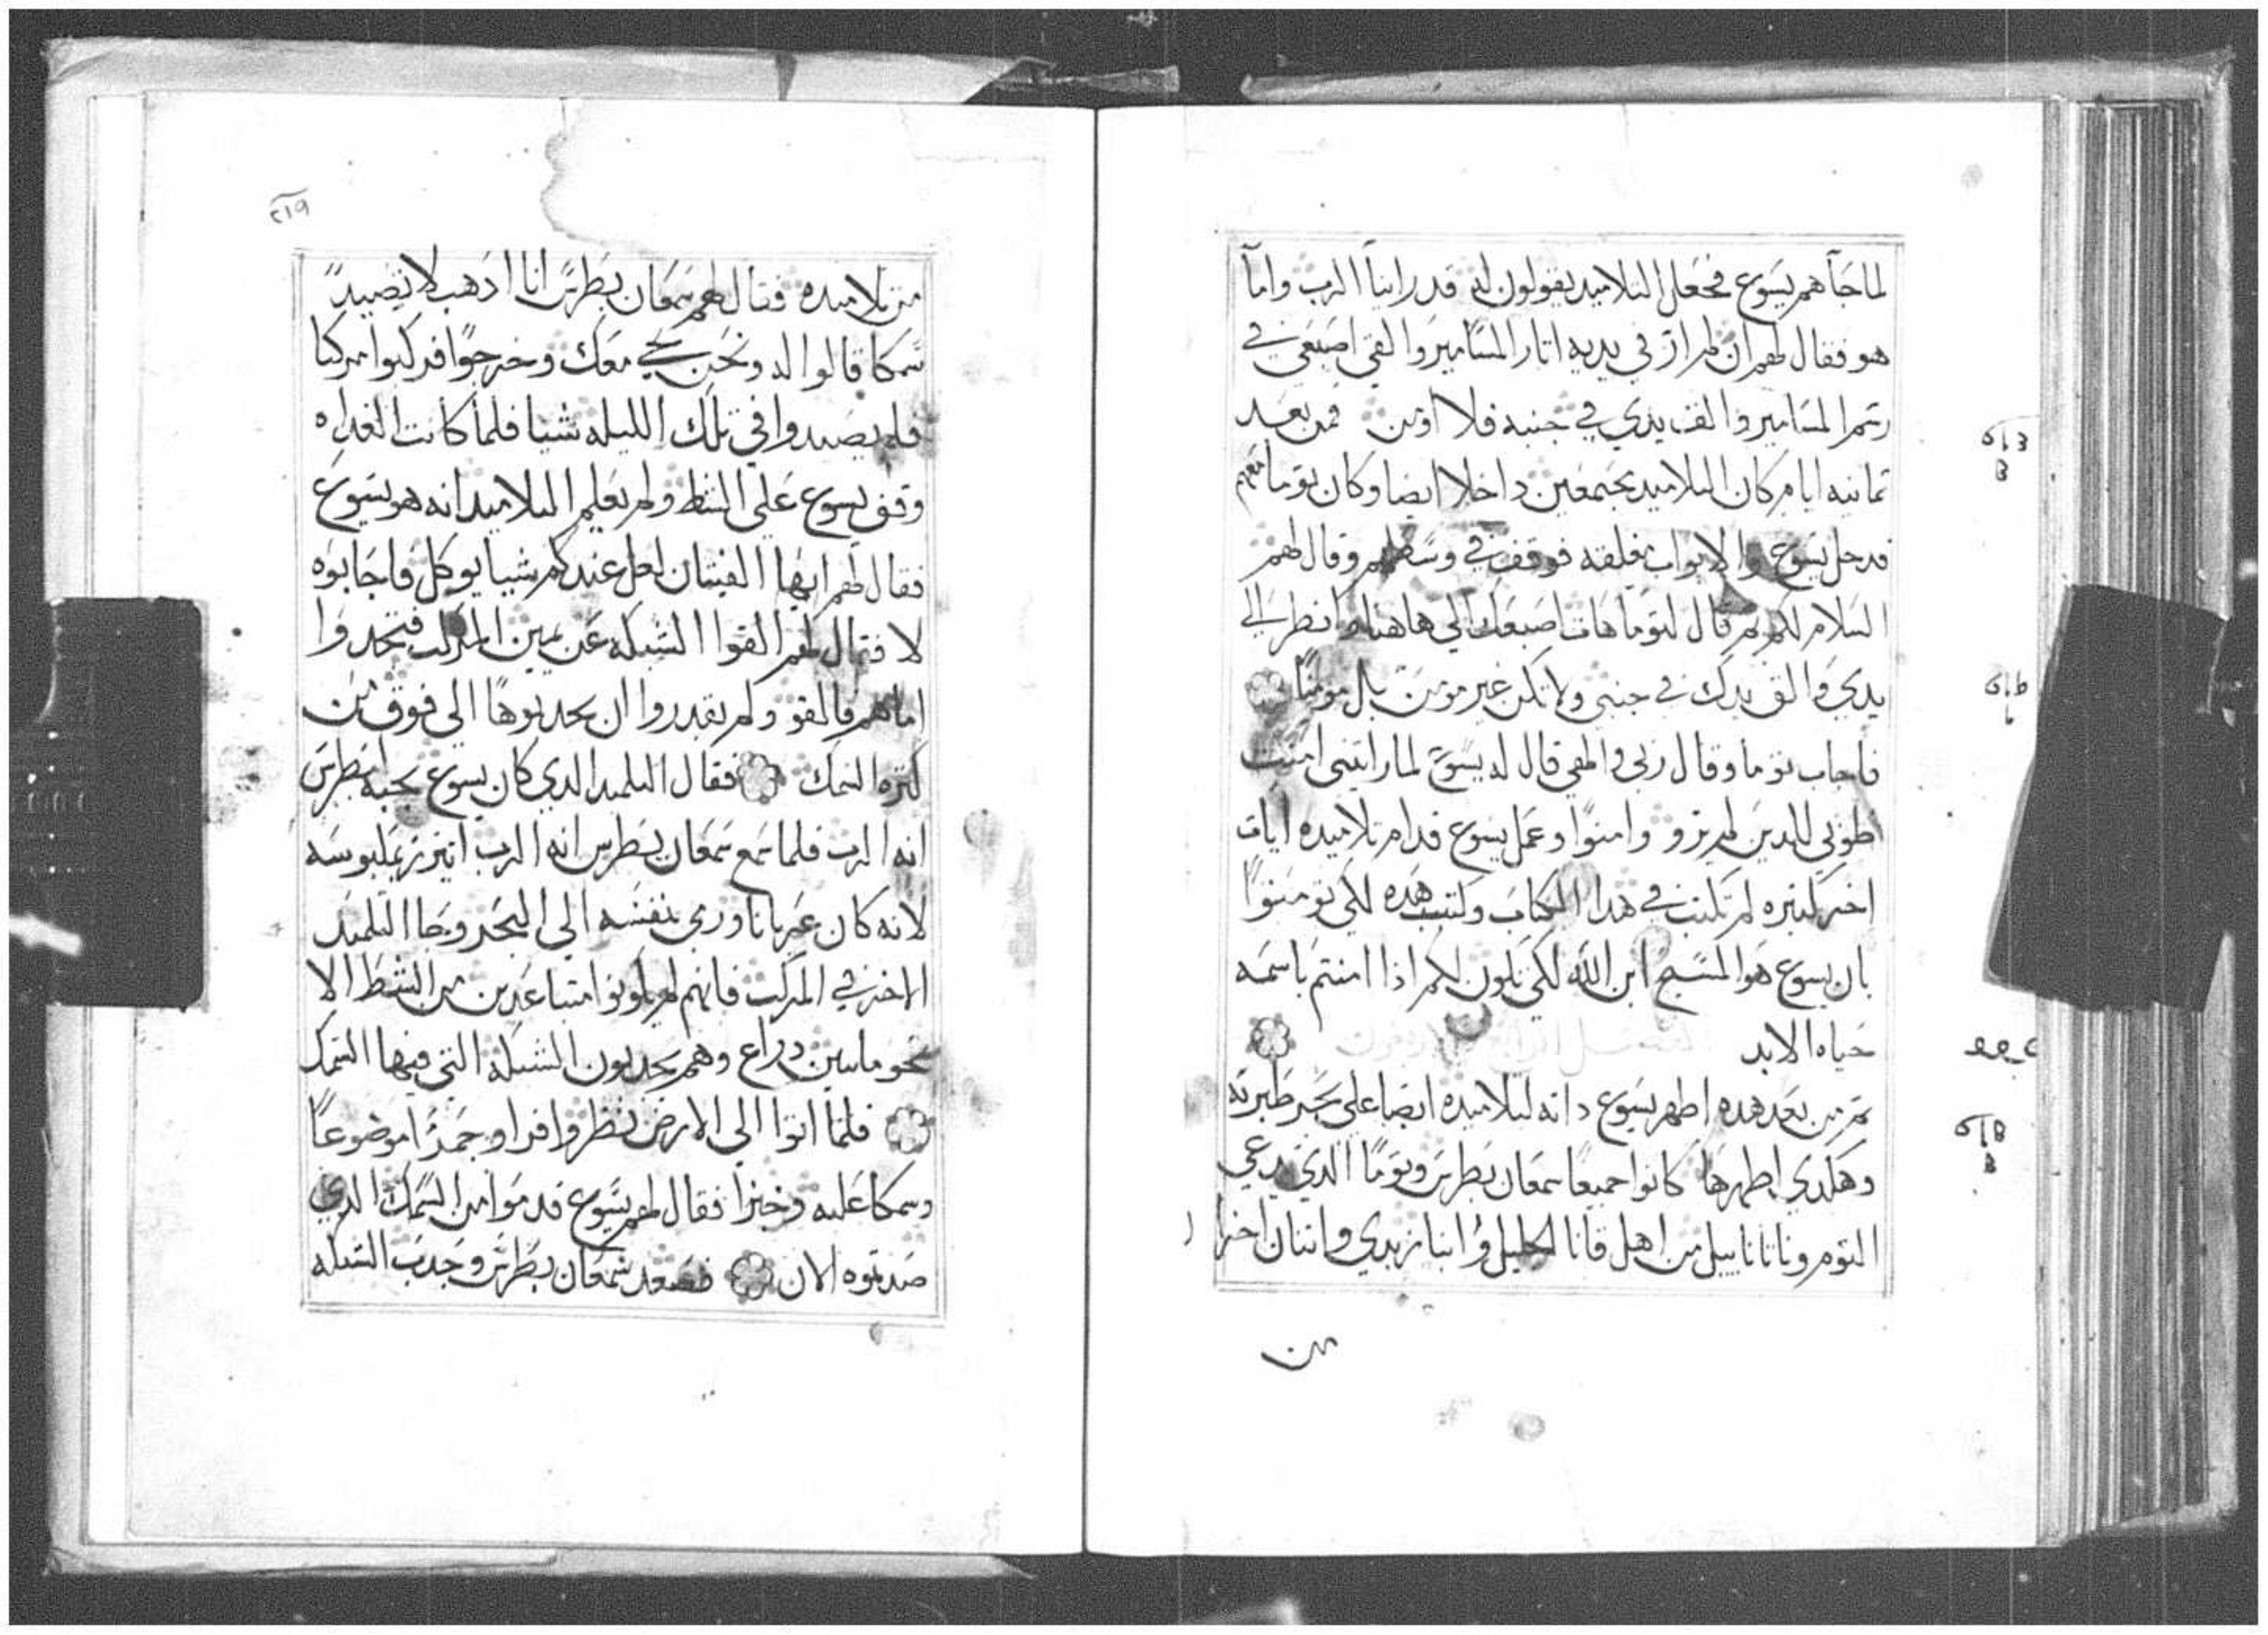 لما جاهم يسوع فجعل التلاميد يقولون له قد راينا الرب واما
هو فقال لهم ان لم ارَ في يديه اتار المسامير والقي اصبعي في
رسم المسامير والقي يدي في جنبه فلا اومن فمن بعد
تمانيه ايام كان التلاميد مجتمعين داخلا ايضا وكان توما معهم
فدخل يسوع والابواب مغلقه فوقف في وسطهم وقال لهم
السلام لكم تم قال لتوما هات اصبعك الي هاهنا وانظر الي
يدي والق يدك في جنبي ولا تكن غير مومن بل مومنًا
فاجاب توما وقال ربي والهي قال له يسوع لما رايتني امنت
طوبي للدين لم يرو وامنوا وعمل يسوع قدام تلاميده ايات
اخر كتيره لم تكتب في هدا الكتاب وكتبت هده لكي تومنوا
بان يسوع هو المسيح ابن الله لكي تكون لكم ادا امنتم باسمه
حياه الابد
تم من بعد هده اظهر يسوع داته لتلاميده ايضا علي بحر طبريه
وهكدي اظهرها كانوا جميعًا سمعان بطرس وتوما الدي يدعي
التوم وناتانابيل من اهل قانا الجليل وابنا زبدي واتنان اخرا
من
٢١٩
من تلاميده فقال لهم سمعان بطرس انا ادهب لاتصيد
سمكا قالوا له ونحن نجي معك وخرجوا فركبوا مركبا
فلم يصيدوا في تلك الليله شيا فلما كانت الغداه
وقف يسوع علي الشط ولم يعلم التلاميد انه هو يسوع
فقال لهم ايها الفتيان لعل عندكم شيا يوكل فاجابوه
لا فقال لهم القوا الشبكه عن يمين المركب فتجدوا
اما هم فالقو ولم يقدروا ان يجدبوها الي فوق من
كتره السمك فقال التلميد الدي كان يسوع يحبه لبطرس
انه الرب فلما سمع سمعان بطرس انه الرب اتزر بملبوسه
لانه كان عريانا ورمي بنفسه الي البحر وجا التلاميد
الاخر في المركب فانهم لم يكونوا متباعدين من الشط الا
نحو مايتين دراع وهم يجدبون الشبكه التي فيها السمك
فلما اتوا الي الارض نظروا قدا وجمرًا موضوعًا
وسمكا عليه وخبزا فقال لهم يسوع قدموا من السمك الدي
صدتموه الان فصعد سمعان بطرس وجدب الشبكه